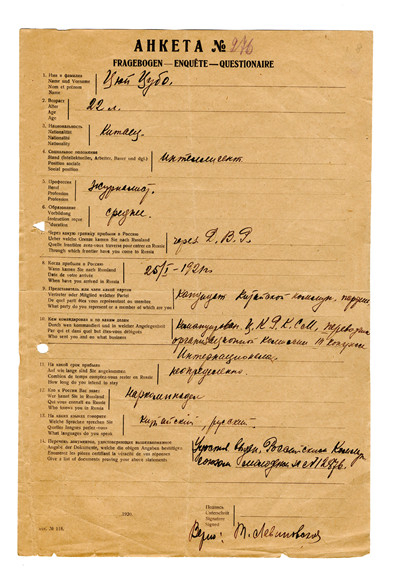 АНКЕТА № 276
FRAGEBOGEN—ENQUÊTE—QUESTIONAIRE
1. Имя и фамилия
Name und Vorname
Nom et prénom
Name
Цюй Цубо.
2. Возраст
Alter
Age
Age
22 л.
3. Национальность
Nationalität
Nationalité
Nationality
Китаец.
4. Социальное положение
Stand (Intellektueller, Arbeiter, Bauer und dgl.)
Position sociale
Social position
интеллигент.
5. Профессия
Beruf
Profession
Profession
Журналист.
6. Образование
Vorbildung
Instruction reçue
Education
среднее.
Через какую границу прибыли в Россию
Ueber welche Grenze kamen Sie nach Russland
Quelle frontière avez-vous traversé pour entrer en Russie
Through which frontier have you came to Russia
через Д.В.Р.
8. Когда прибыли в Россию
Wann kamen Sie nach Russland
Date de votre arrivée
When have you arrived in Russia
25/I—1921 г.
9. Представитель или член какой партии
Vertreter oder Mitglied welcher Partei
De quel parti êtes vous représentant ou membre
What party do you represent or a member of which are you
Кандидат Китайской коммун. партии
10. Кем командированы и по каким делам
Durch wen kommandiert und in welcher Angelegenheit
Par qui et dans quel but êtes-vous délégués
Who sent you and on what business
Командирован
организационной комиссии III конгресса
Интернационала.
11. На какой срок прибыли
Auf wie lange sind Sie angekommen
Combien de temps comptez-vous rester en Russie
How long do you intend to stay
неопределенно.
12. Кто в России Вас знает
Wer kennt Sie in Russland
Qui vous connaît en Russie
Who knows you in Russia
Наркоминдел
13. На каких языках говорите
Welche Sprachen sprechen Sie
Quelles langues parlez-vous
What languages do you speak
Китайский, русский.
14. Перечень документов, удостоверяющих вышеуказанное
Angabe der Dokumente, welche die obigen Angaben bestätigen
Enumérer les pièces certifiant la véracité de vos réponses
Give a list of documents proving your above statements
Российским Коммун.
союзом молодежи за № 12876.
1920.
Подпись
Unterschrift
Signature
Signed
Верно: Т. Левановская
Зак. № 518.